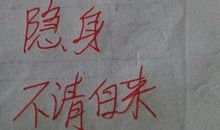 隐身
不清自来